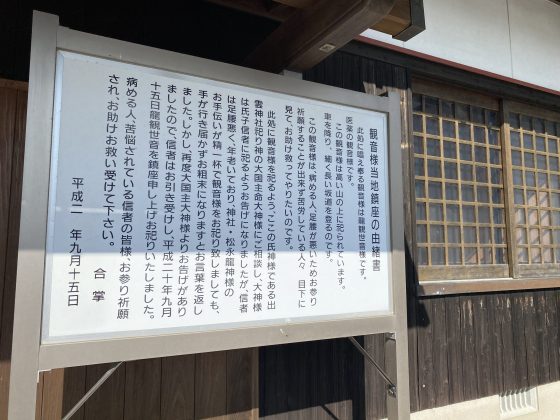 観音様当地鎮座の由緒書
此処に唱え奉る観音様は龍観世音様です。
医薬の観音様です。
この観音様は高い山の上に祀られています。
車を降り、細く長い坂道を登るのです。
この観音様は、病める人、足腰が悪いためお参り
祈願することが出来ず苦労している人々、目下に
見て、お助け救ってやりたいのです。
此処に観音様を祀るよう、ここの氏神様である出
雲神社祀り神の大国主命大神様にご相談し、大神様
は氏子信者に祀るようお告げになりましたが、信者
は足腰悪く、年老いており、神社・松永龍神様の
お手伝いが精一杯で観音様をお祀り致しましても、
手が行き届かずお粗末になりますとお言葉を返し
ました。しかし、再度大国主大神様よりお告げがあり
ましたので、信者はお引き受けし、平成二十年九月
十五日龍観世音を鎮座申し上げお祀りいたしました。
病める人、苦悩されている信者の皆様、お参り祈願
され、お助けお救い受けて下さい。
合掌
平成二 年九月十五日